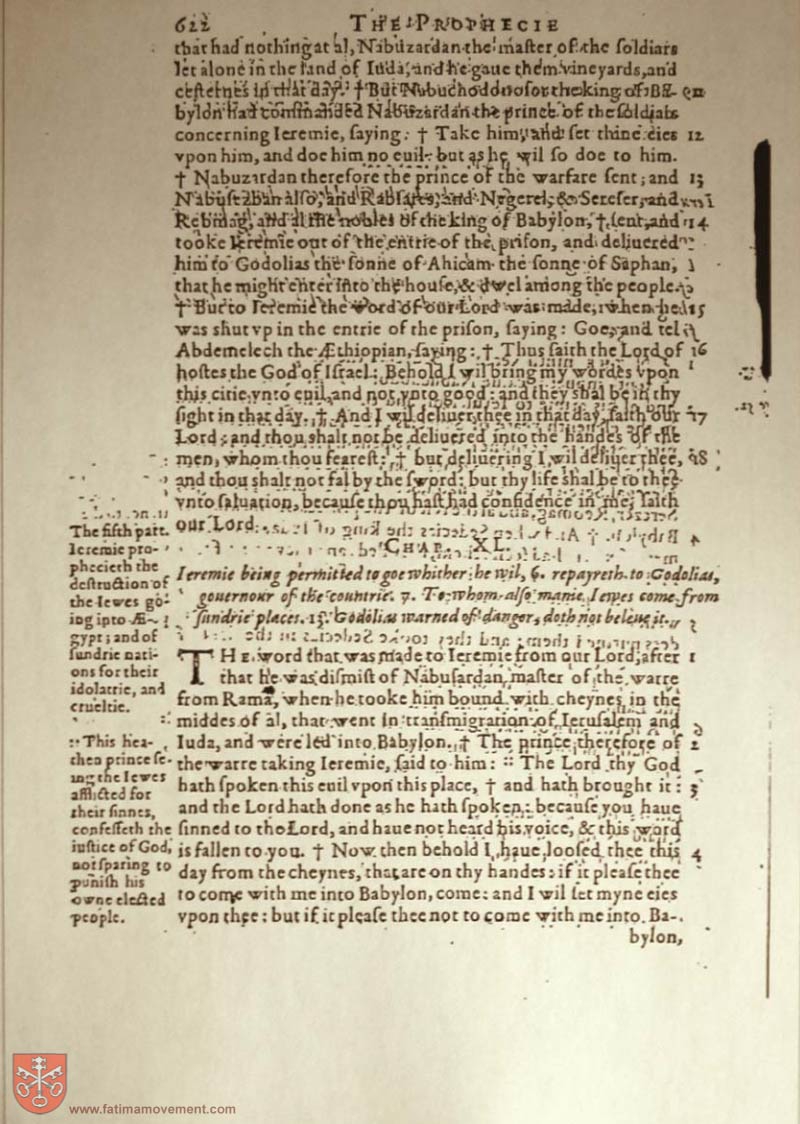 622 THE PROPHECIE
that had nothing at al, Nabuzardan the master of the soldiars
let alone in the land of Iuda, and he gaue them vineyards, and
cesternes in that day. † But Nabuchodonosor the king of Ba-
bylon had commanded Nabuzardan the prince of the soldiars
concerning Ieremie, saying: † Take him, and set thine eies 12
vpon him, and doe him no euil: but as he wil so doe to him.
† Nabuzardan therefore the prince of the warfare sent; and 13
Nabusezban also, and Rabsares, and Negerel, & Sereser, and
Rebmag, and al the nobles of the king of Babylon, † sent, and 14
tooke Ieremie out of the entrie of the prison, and deliuered
him to Godolias the sonne of Ahicam the sonne of Saphan,
that he might enter into the house, & dwel among the people.
† But to Ieremie the word of our Lord was made, when he 15
was shut vp in the entrie of the prison, saying: Goe, and tel
Abdemelech the Æthiopian, saying: † Thus saith the Lord of 16
hostes the God of Israel: Behold I wil bring my wordes vpon
this citie vnto euil, and not vnto good: and they shal be in thy
sight in that day. † And I wil deliuer thee in that day, saith our 17
Lord: and thou shalt not be deliuered into the handes of the
men, whom thou fearest: † but deliuering I wil deliuer thee, 18
and thou shalt not fal by the sword: but thy life shal be to thee
vnto saluation, because thou hast had confidence in me, saith
our Lord.
CHAP. XL.
Ieremie being permitted to goe whither he wil, 6. repayreth to Godolias,
gouernour of the countrie. 7. To whom also manie Iewes come from
sundrie places. 15. Godolias warned of danger, doth not beleue it.
The fifth part.
Ieremie pro-
phecieth the
destruction of
the Iewes go-
ing into Æ-
gypt; and of
sundrie nati-
ons for their
idolatrie, and
crueltie.
THE word that was made to Ieremie from our Lord, after 1
that he was dismist of Nabusardan, master of the warre
from Rama, when he tooke him bound with cheynes in the
middes of al, that went in transmigration of Ierusalem and
Iuda, and were led into Babylon. † The prince therefore of 2
the warre taking Ieremie, said to him: :: The Lord thy God
hath spoken this euil vpon this place, † and hath brought it: 3
and the Lord hath done as he hath spoken: because you haue
sinned to the Lord, and haue not heard his voice, & this word
is fallen to you. † Now then behold I haue loosed thee this 4
day from the cheynes, that are on thy handes: if it please thee
to come with me into Babylon, come: and I wil set myne eies
vpon thee: but if it please thee not to come with me into Ba-
bylon,
:: This hea-
then prince se-
ing the Iewes
afflicted for
their sinnes,
confesseth the
iustice of God,
not sparing to
punish his
owne elected
people.
www.fatimamovement.com